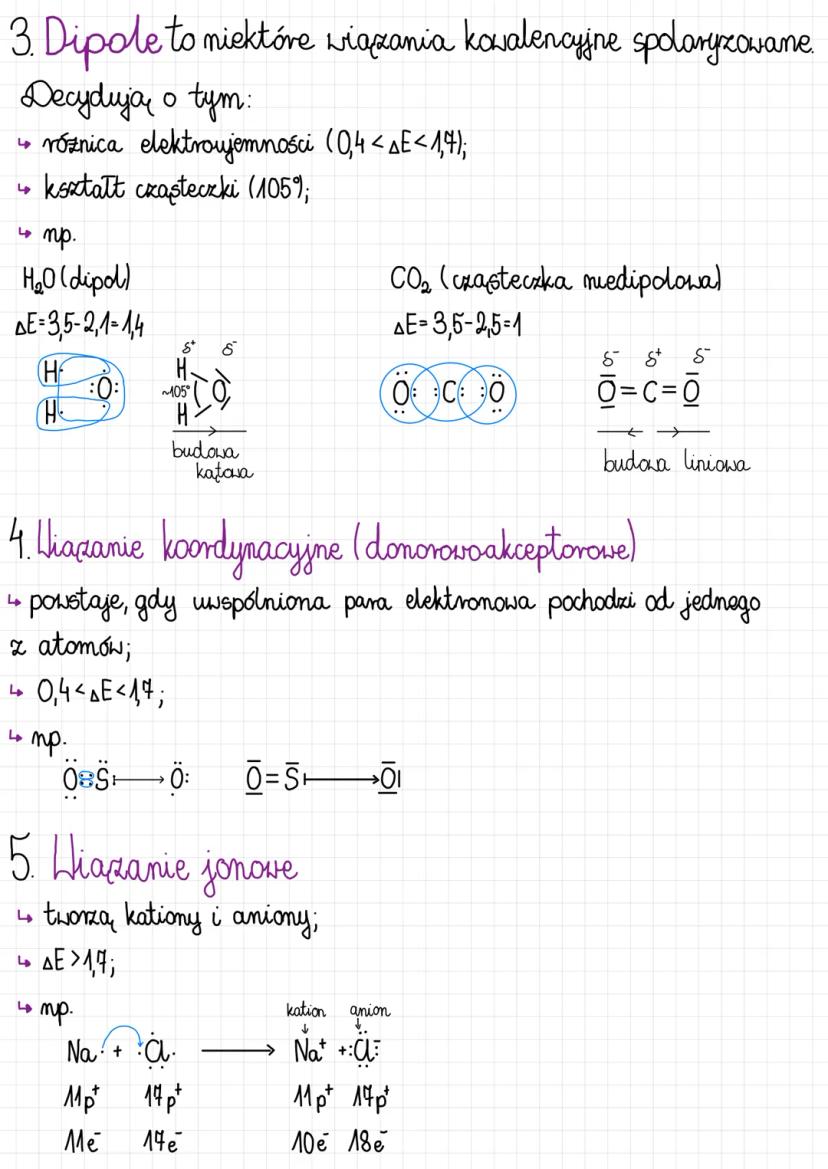 3. Dipole to niektóre wiązania kowalencyjne spolaryzowane.
Decydują o tym:
↳ różnica elektroujemności (0,4 < ΔE < 1,7);
↳ kształt cząsteczki (105°);
↳ np.
H₂O (dipol) CO₂ (cząsteczka niedipolowa)
ΔE = 3,5 - 2,1 = 1,4 ΔE = 3,5 - 2,5 = 1
δ⁺ δ⁻ δ⁻ δ⁺ δ⁻
H H
:O: ~105° O O: :C: :O O=C=O
H H
budowa budowa liniowa
kątowa
4. Wiązanie koordynacyjne (donorowoakceptorowe)
↳ powstaje, gdy uwspólniona para elektronowa pochodzi od jednego
z atomów;
↳ 0,4 < ΔE < 1,7;
↳ np.
O::S: → O: O=S → O|
5. Wiązanie jonowe
↳ tworzą kationy i aniony;
↳ ΔE > 1,7;
↳ np. kation anion
Na· + :Cl· → Na⁺ + :Cl:⁻
11p⁺ 17p⁺ 11p⁺ 17p⁺
11e⁻ 17e⁻ 10e⁻ 18e⁻